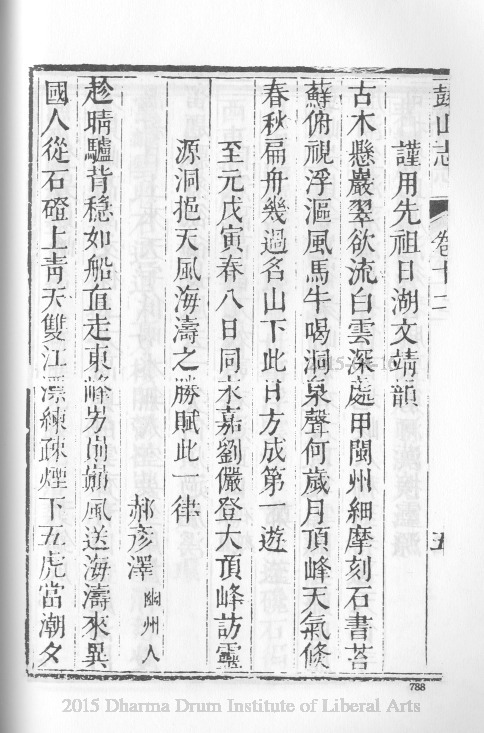 鼓山志 卷十二 五
謹用先祖日湖文靖韻
古木懸巖翠欲流白雲深處甲閩州細摩刻石書苔
蘚俯視浮漚風馬牛喝洞泉聲何歲月頂峰天氣倐
春秋扁舟幾過名山下此日方成第一遊
至元戊寅春八日同永嘉劉儼登大頂峰訪靈
源洞挹天風海濤之勝賦此一律
郝彥澤 幽州人
趁晴驢背穩如船直走東峰屴崱巔風送海濤來異
國人從石磴上青天雙江漂練疎煙下五虎當潮夕
788
2015 Dharma Drum Institute of Liberal Arts